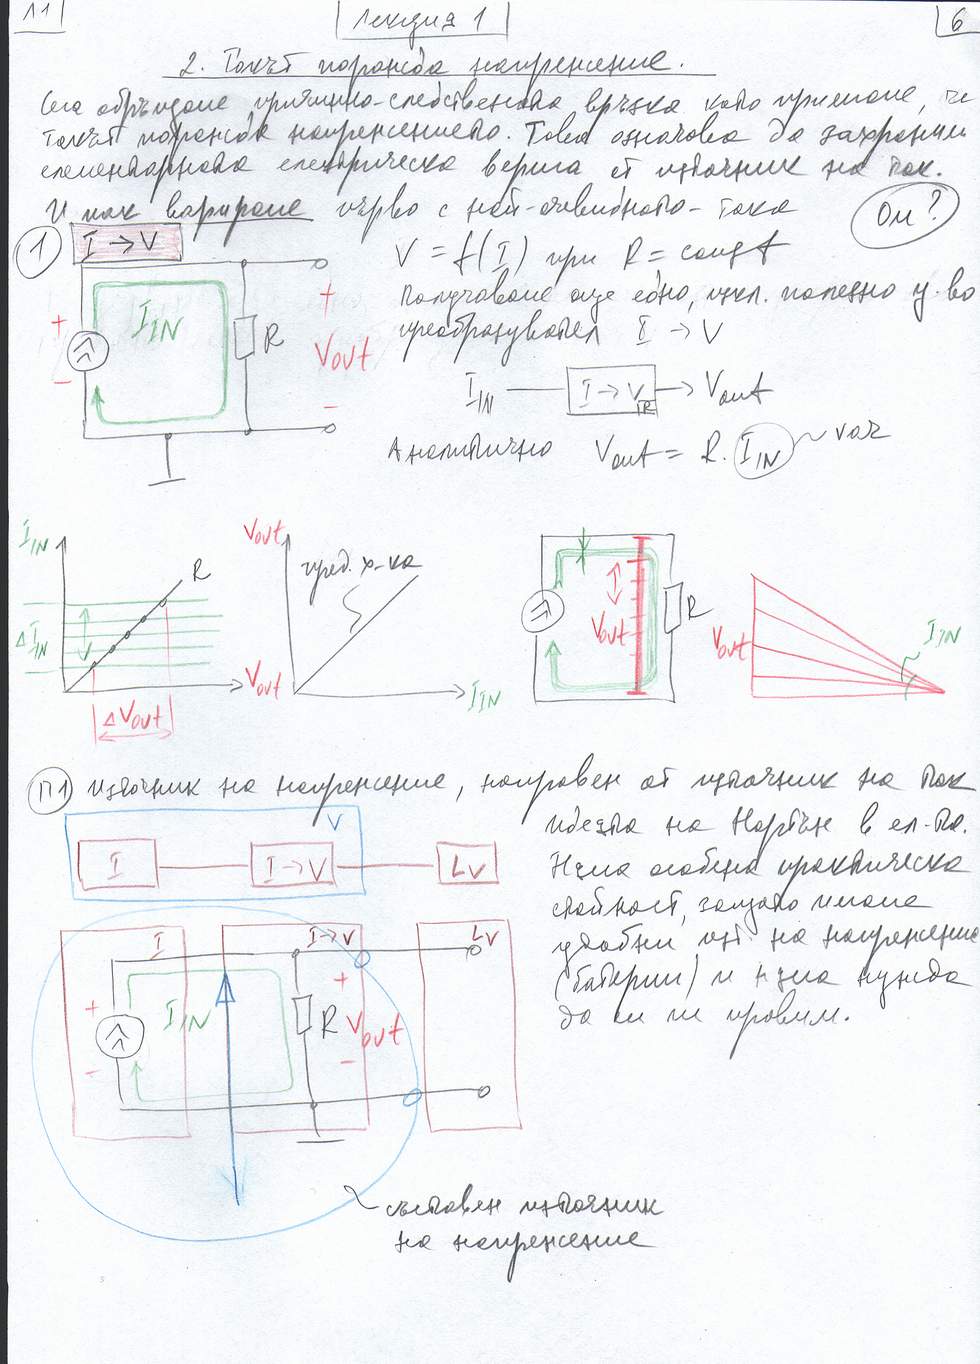 Л1
Лекция 1
6
2. Токът поражда напрежение.
Сега обръщаме причинно-следствената връзка като приемаме, че
токът поражда напрежението. Това означава да захраним
елементарната електрическа верига от източник на ток.
И пак варираме първо с най-очевидното - тока
Ом?
1
I → V
V = f(I) при R = const
Получаваме още едно, изкл. полезно у-во
преобразувател I → V
I IN
R
+
-
+
Vout
-
I IN
I → V
R
Vout
Аналитично Vout = R. I IN
var
I IN
R
Δ I IN
Vout
Δ Vout
Vout
пред. х-ка
I IN
Vout
R
Vout
I IN
П1 Източник на напрежение, направен от източник на ток
V
I
I → V
LV
Идеята на Нортън в ел-та.
Няма особена практическа
стойност, защото имаме
удобни изт. на напрежение
(батерии) и няма нужда
да ги правим.
I
I → V
LV
+
-
I IN
R
+
Vout
-
съставен източник
на напрежение